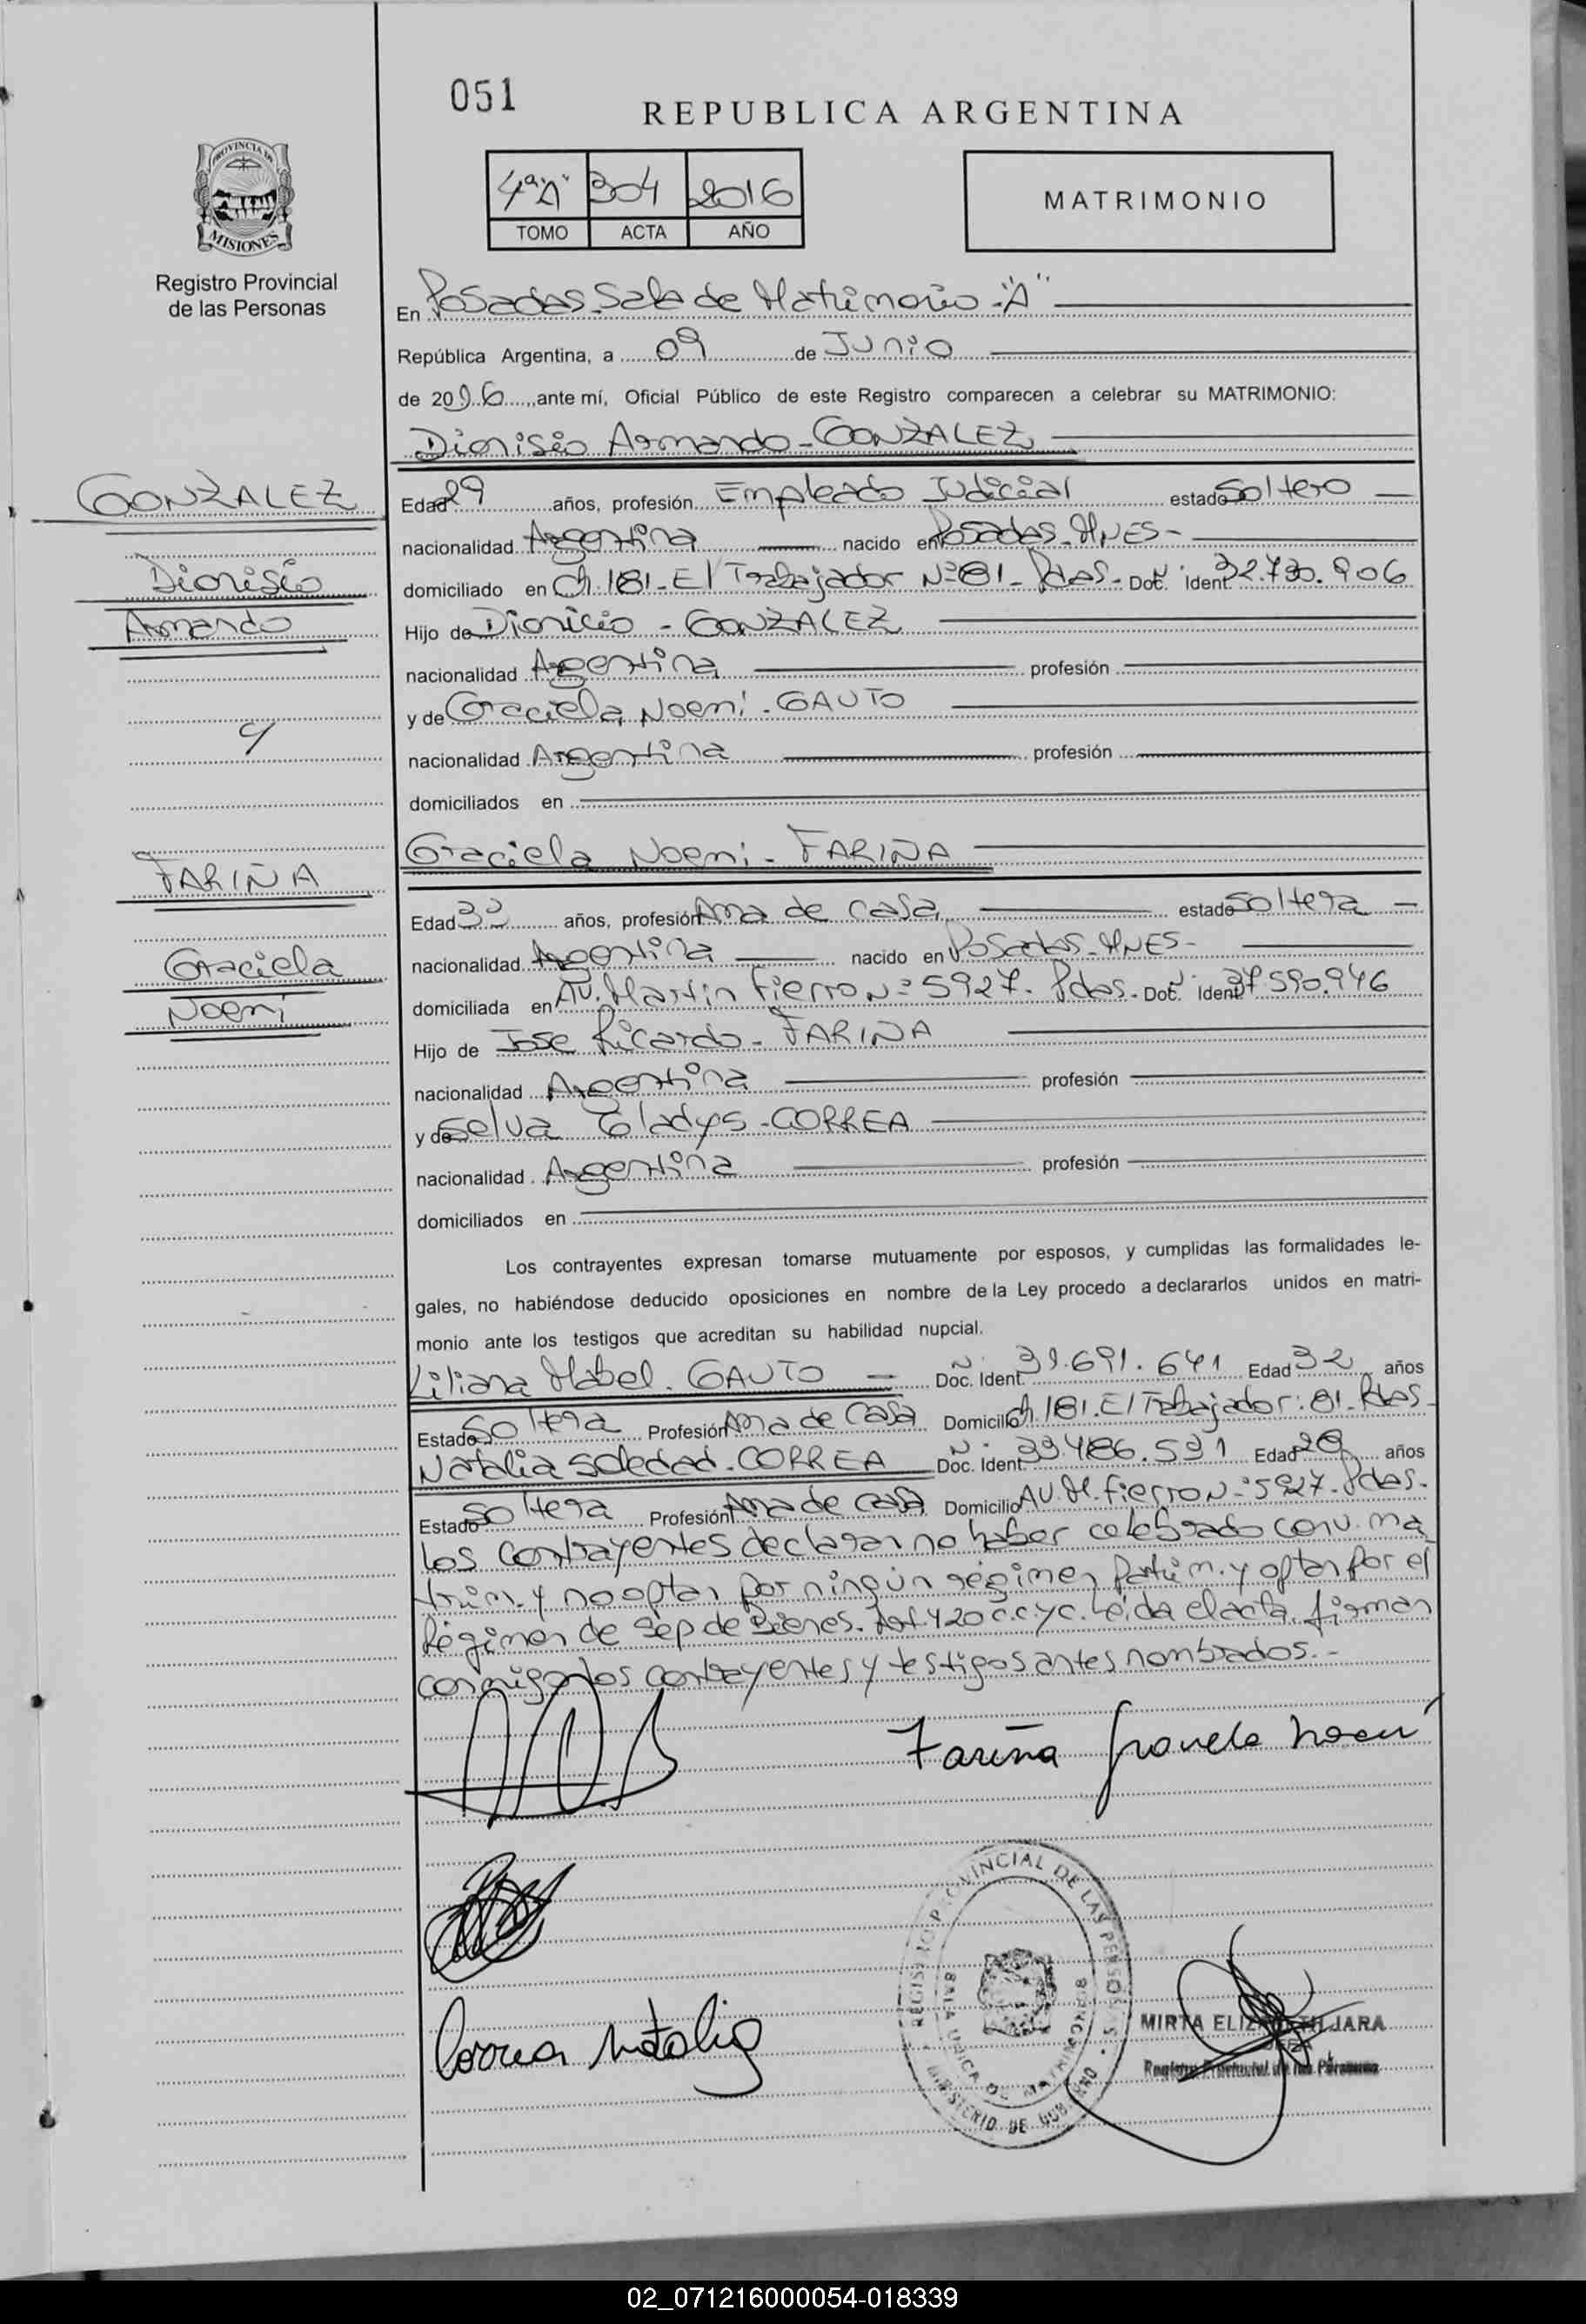 051
REPUBLICA ARGENTINA
PROVINCIA DE
MISIONES
Registro Provincial
de las Personas
4º"A" 304 2016
TOMO ACTA AÑO
MATRIMONIO
En Posadas-Sala de Matrimonio-"A"
República Argentina, a 09 de Junio
de 2016, ante mí, Oficial Público de este Registro comparecen a celebrar su MATRIMONIO:
Dionisio Armando-GONZALEZ
GONZALEZ
Dionisio
Armando
y
FARIÑA
Graciela
Noemi
Edad 29 años, profesión Empleado Judicial estado Soltero
nacionalidad Argentina nacido en Posadas-MNES-
domiciliado en Ch.181-El Trabajador Nº81-Pdas- Doc. Ident. Nº 32.730.906
Hijo de Dionicio - GONZALEZ
nacionalidad Argentina profesión
y de Graciela Noemi-GAUTO
nacionalidad Argentina profesión
domiciliados en
Graciela Noemi-FARIÑA
Edad años, profesión Ama de casa estado Soltera
nacionalidad Argentina nacido en Posadas-MNES-
domiciliada en AV.Martin Fierro Nº 5927-Pdas- Doc. Ident. Nº 37.590.946
Hijo de Jose Ricardo-FARIÑA
nacionalidad Argentina profesión
y de Selva Gladys-CORREA
nacionalidad Argentina profesión
domiciliados en
Los contrayentes expresan tomarse mutuamente por esposos, y cumplidas las formalidades le-
gales, no habiéndose deducido oposiciones en nombre de la Ley procedo a declararlos unidos en matri-
monio ante los testigos que acreditan su habilidad nupcial.
Liliana Mabel-GAUTO Doc. Ident. Nº 31.691.641 Edad 32 años
Estado Soltera Profesión Ama de casa Domicilio Ch.181.El Trabajador:81-Pdas-
Natalia Soledad-CORREA Doc. Ident. Nº 33.486.531 Edad 28 años
Estado Soltera Profesión Ama de casa Domicilio AV.M.Fierro Nº 5927-Pdas-
Los contrayentes declaran no haber celebrado conv. ma
trim. y no optan por ningún régimen Patrim. y optan por el
Régimen de Sep de Bienes-Art.420 C.C.yC. Leída el acta, firman
conmigo los contrayentes y testigos antes nombrados.-
Fariña Graciela Noemi
Correa Natalia
REGISTRO PROVINCIAL DE LAS PERSONAS
MINISTERIO DE GOBIERNO
SALA UNICA DE MATRIMONIOS
MIRTA JARA
Registro Provincial de las Personas
02_071216000054-018339